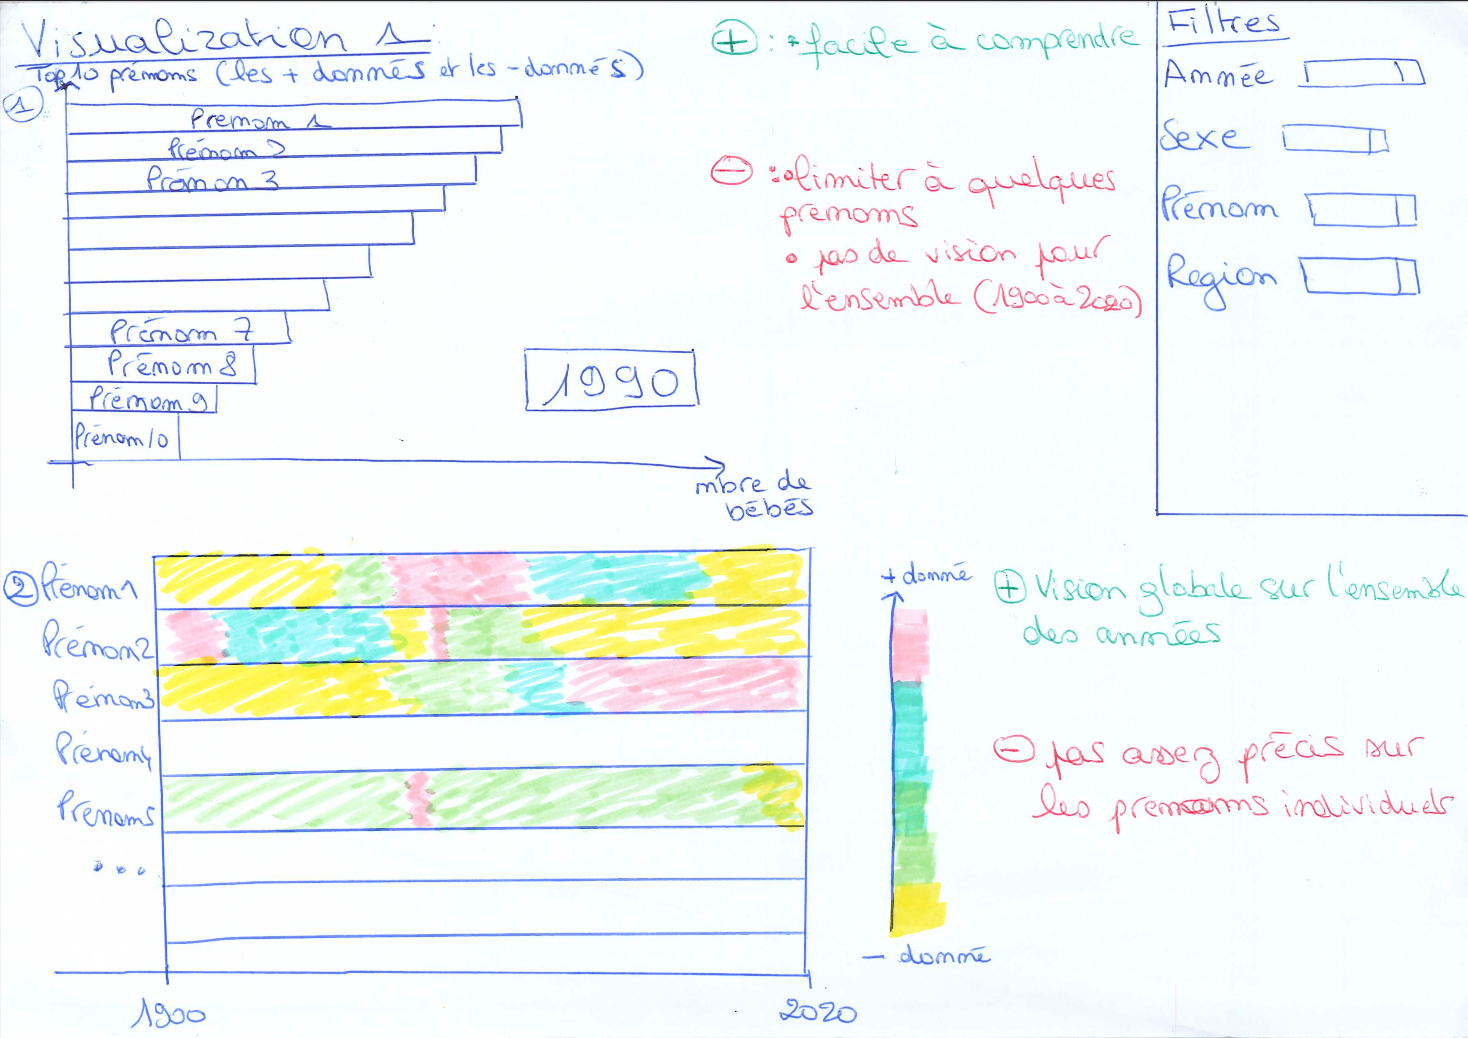 Visualization 1
Top 10 prénoms (les + donnés et les - donnés)
1
Prenom 1
Prénom 2
Prénom 3
Prénom 7
Prénom 8
Prénom 9
Prénom 10
1990
nbre de
bébés
+ : • facile à comprendre
- : • limiter à quelques
prénoms
• pas de vision pour
l'ensemble (1900 à 2020)
Filtres
Année
Sexe
Prénom
Region
2
Prénom 1
Prénom 2
Prénom 3
Prénom 4
Prenom 5
...
1900
2020
+ donné
- donné
+ Vision globale sur l'ensemble
des années
- pas assez précis sur
les prenoms individuels